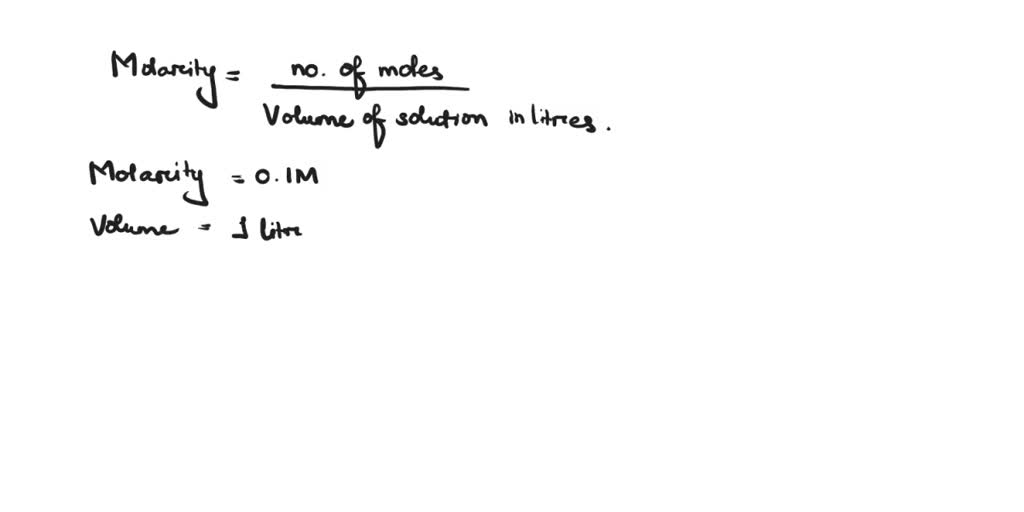 Molarity = no. of moles
Volume of solution in litres.
Molarity = 0.1M
Volume = 1 litre